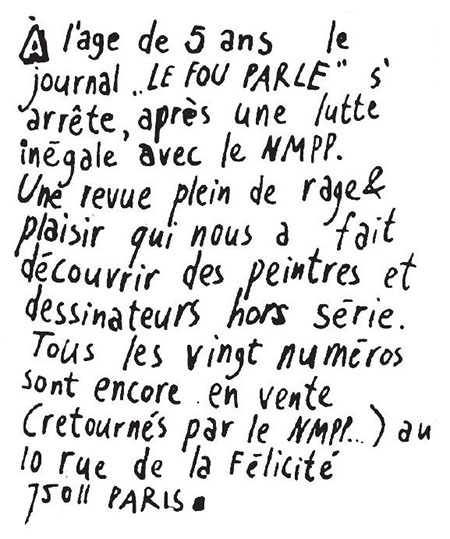 À l'age de 5 ans le
journal „LE FOU PARLE" s'
arrête, après une lutte
inégale avec le NMPP.
Une revue plein de rage &
plaisir qui nous a fait
découvrir des peintres et
dessinateurs hors série.
Tous les vingt numéros
sont encore en vente
(retournés par le NMPP...) au
10 rue de la Félicité
75011 PARIS.